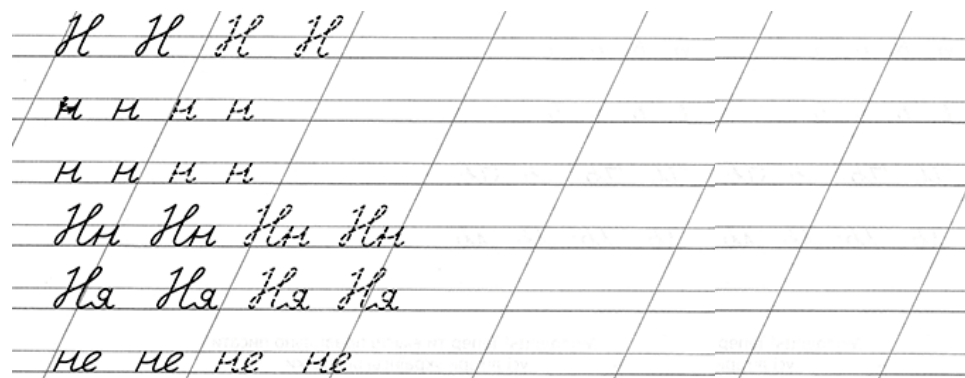 Н Н Н Н
н н н н
н н н н
Нн Нн Нн Нн
Ня Ня Ня Ня
не не не не